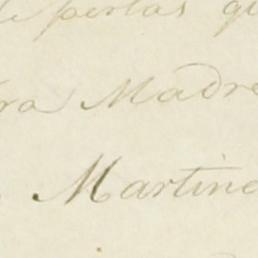 de perlas qu
tra Madre
Martine